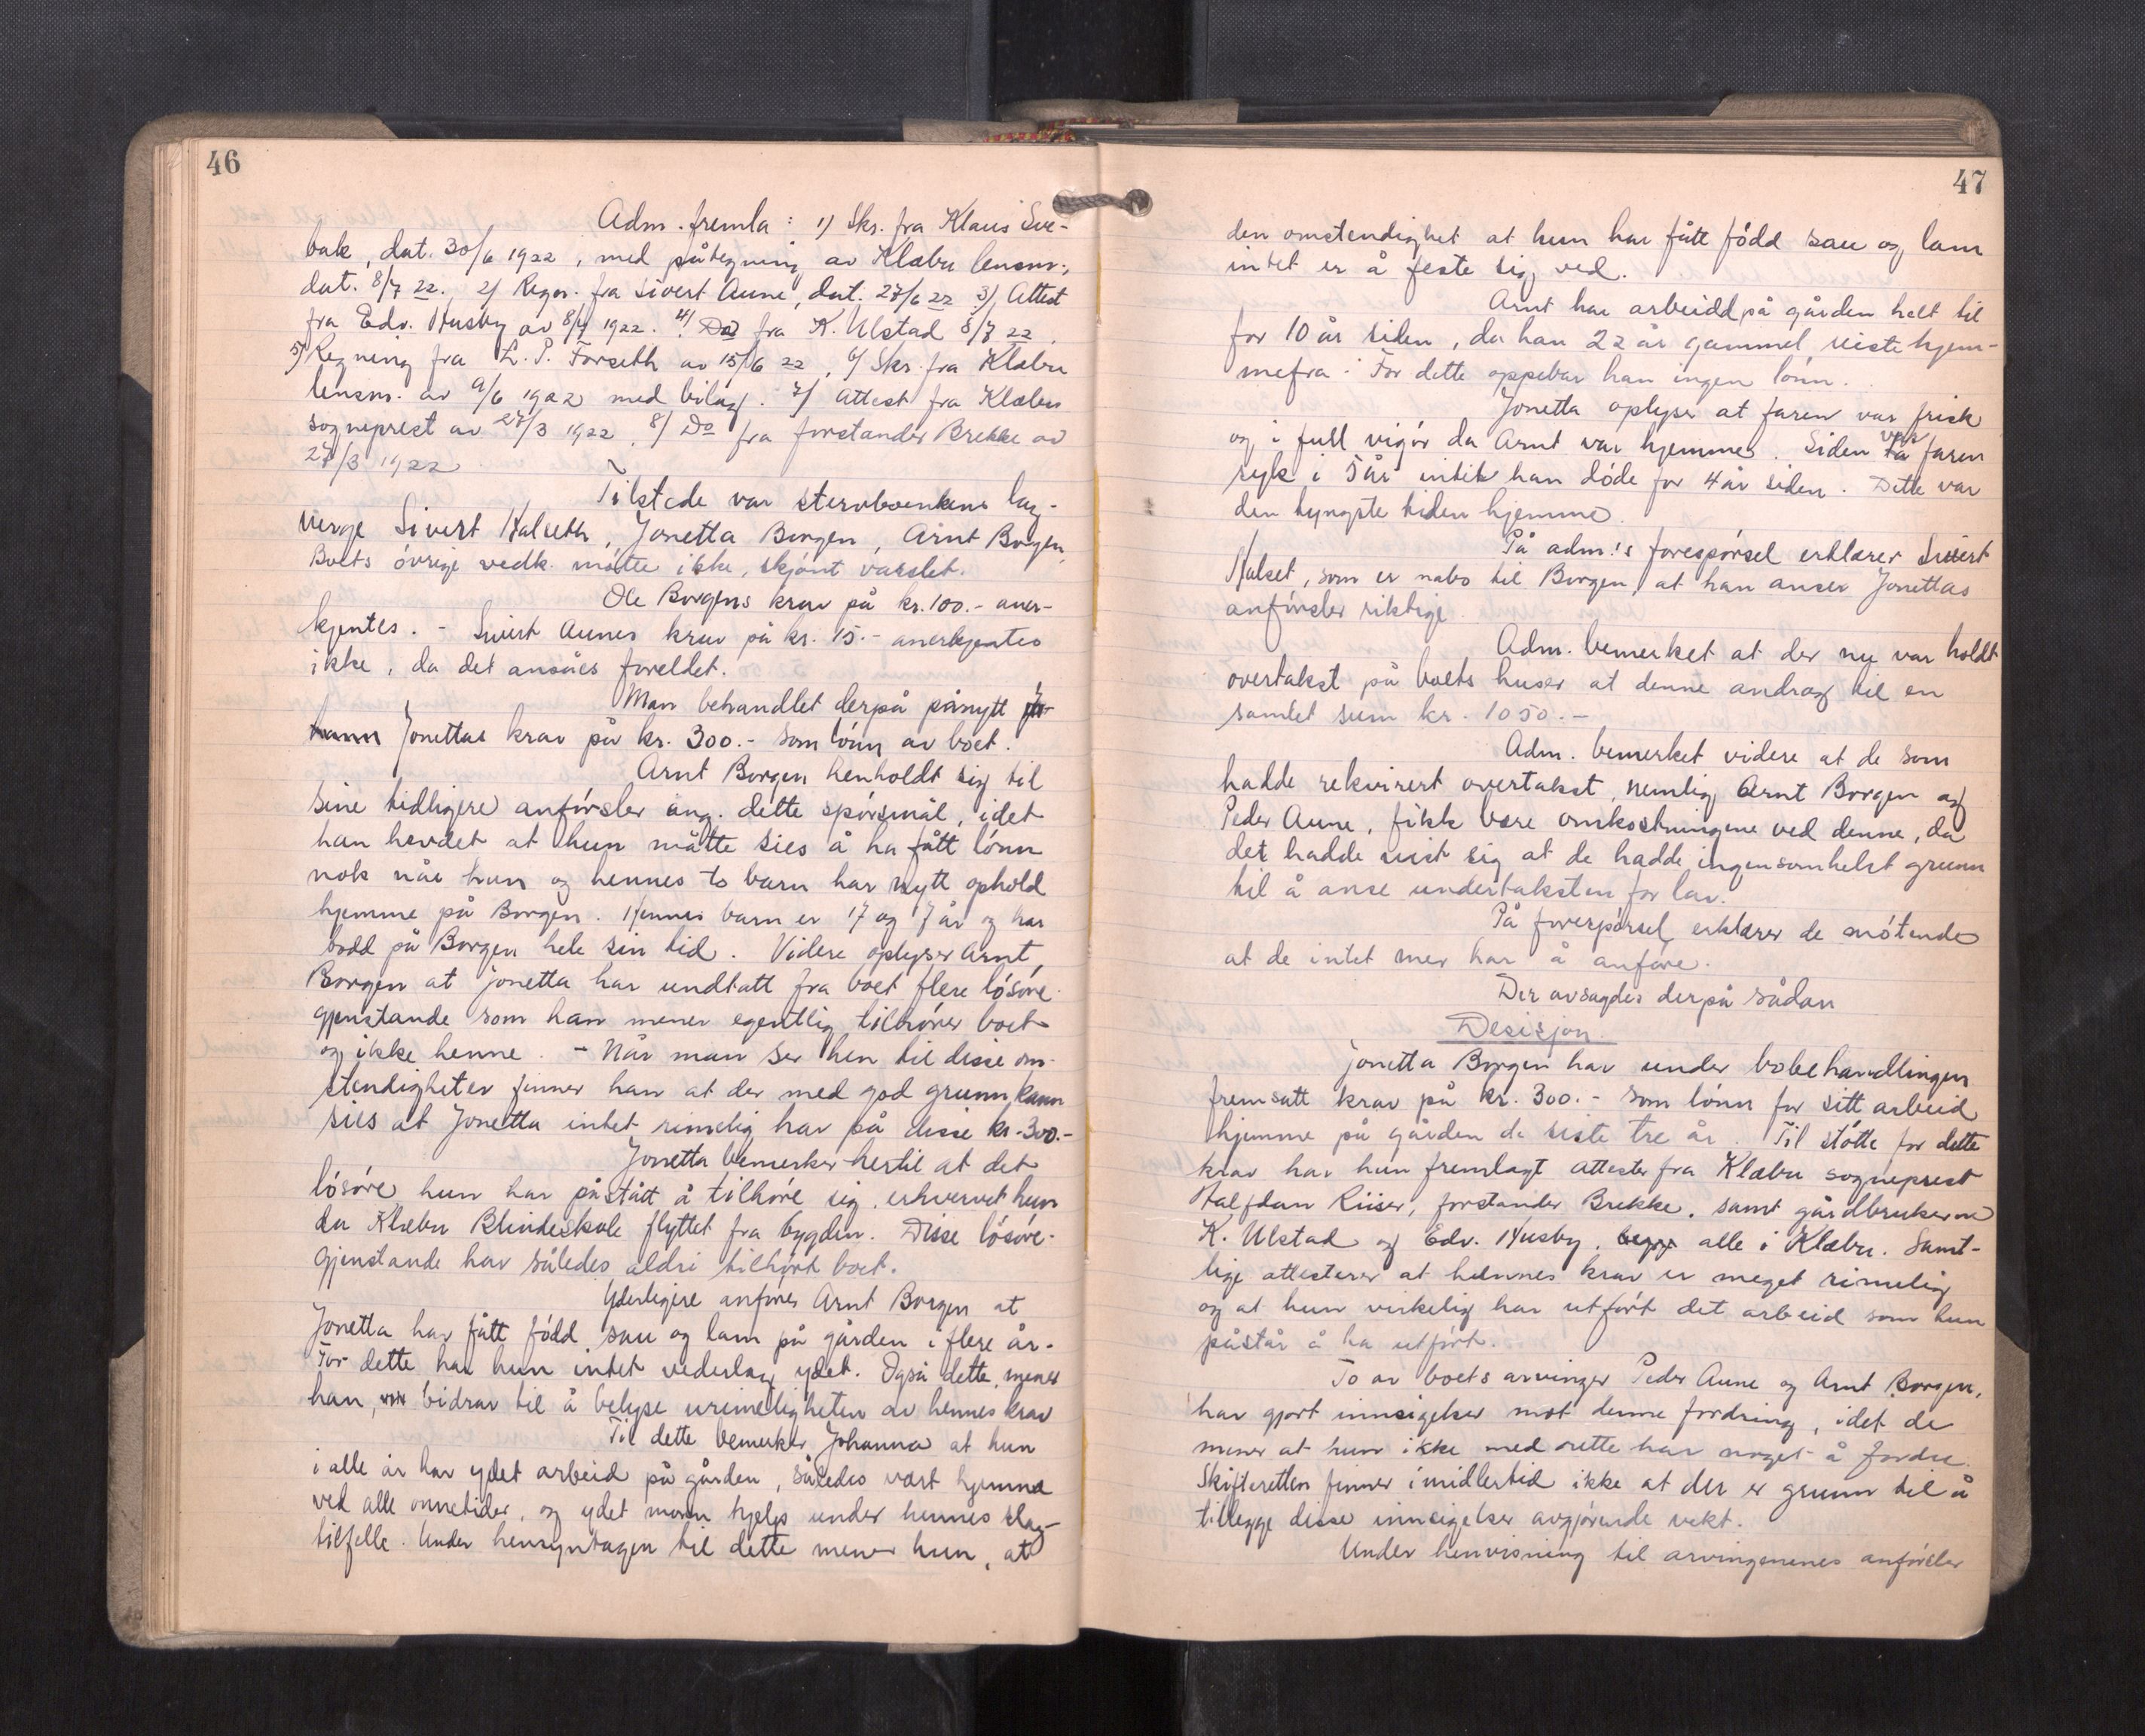 46
Adm. fremla: 1) Skr. fra Klaus Sve-
bak, dat. 30/6 1922, med påtegning av Klæbu lensm.,
dat. 8/7 22. 2/ Regn. fra Sivert Aune, dat. 27/6 22 3/ Attest
fra Edv. Husby av 8/7 1922. 4/ Do fra K. Ulstad 8/7 22.
5/ Regning fra L. P. Forseth av 15/6 22, 6/ Skr. fra Klæbu
lensm. av 9/6 1922 med bilag. 7/ Attest fra Klæbu
sogneprest av 27/3 1922, 8/ Do fra forstander Brekke av
27/3 1922
Tilstede var stervboenkens lag-
verge Sivert Halseth, Jonetta Borgen, Arnt Borgen,
Boets øvrige vedk. møtte ikke, skjønt varslet.
Ole Borgens krav på kr. 100.- aner-
kjentes. - Sivert Aunes krav på kr. 15.- anerkjentes
ikke, da det ansåes foreldet.
Man behandlet derpå pånytt Jo-
hanns Jonettas krav på kr. 300.- som lønn av boet.
Arnt Borgen henholdt sig til
sine tidligere anførsler ang. dette spørsmål, idet
han hevdet at hun måtte sies å ha fått lønn
nok når hun og hennes to barn har nytt ophold
hjemme på Borgen. Hennes barn er 17 og 7 år og har
bodd på Borgen hele sin tid. Videre oplyser Arnt
Borgen at Jonetta har undtatt fra boet flere løsøre
gjenstande som han mener egentlig tilhører boet
og ikke henne. - Når man ser hen til disse om-
stendigheter finner han at der med god grunn kann
sies at Jonetta intet rimelig har på disse kr. 300.-
Jonetta bemerker hertil at det
løsøre hun har påstått å tilhøre sig, erhvervet hun
da Klæbu Blindeskole flyttet fra bygden. Disse løsøre-
gjenstande har således aldri tilhørt boet.
Yderligere anføres Arnt Borgen at
Jonetta har fått född sau og lam på gården i flere år.
For dette har hun intet vederlag ydet. Også dette, mener
han, bidrar til å belyse urimeligheten av hennes krav
Til dette bemerker Johanna at hun
i alle år har ydet arbeid på gården, således vært hjemme
ved alle onnetider, og ydet moren hjelp under hennes slag-
tilfelle. Under hensyntagen til dette mener hun, at
47
den omstendighet at hun har fått född sau og lam
intet er å feste sig ved.
Arnt har arbeidd på gården helt til
for 10 år siden, da han 22 år gammel reiste hjem-
mefra. For dette oppebar han ingen lønn.
Jonetta oplyser at faren var frisk
og i full vigør da Arnt var hjemme. Siden var faren
syk i 5 år inntil han døde for 4 år siden. Dette var
den tyngste tiden hjemme.
På adm.'s forespørsel erklærer Sivert
Halset, som er nabo til Borgen, at han anser Jonettas
anførsler riktige.
Adm. bemerket at der nu var holdt
overtakst på boets huser at denne androg til en
samlet sum kr. 1050.-
Adm. bemerket videre at de som
hadde rekvirert overtakst, nemlig Arnt Borgen og
Peder Aune, fikk bære omkostningene ved denne, da
det hadde vist sig at de hadde ingensomhelst grunn
til å anse undertaksten for lav.
På forespørsel erklærer de møtende
at de intet mer har å anføre.
Der avsagdes derpå sådan
Desisjon.
Jonetta Borgen har under bobehandlingen
fremsatt krav på kr. 300.- som lønn for sitt arbeid
hjemme på gården de siste tre år. Til støtte for dette
krav har hun fremlagt attester fra Klæbu sogneprest
Halfdan Riiser, forstander Brekke, samt gårdbrukerne
K. Ulstad og Edv. Husby, alle i Klæbu. Samt-
lige attesterer at hennes krav er meget rimelig
og at hun virkelig har utført det arbeid som hun
påstår å ha utført.
To av boets arvinger Peder Aune og Arnt Borgen,
har gjort innsigelser mot denne fordring, idet de
mener at hun ikke med rette har noget å fordre.
Skifteretten finner imidlertid ikke at der er grunn til å
tillegge disse innsigelser avgjørende vekt.
Under henvisning til arvingenenes anførsler